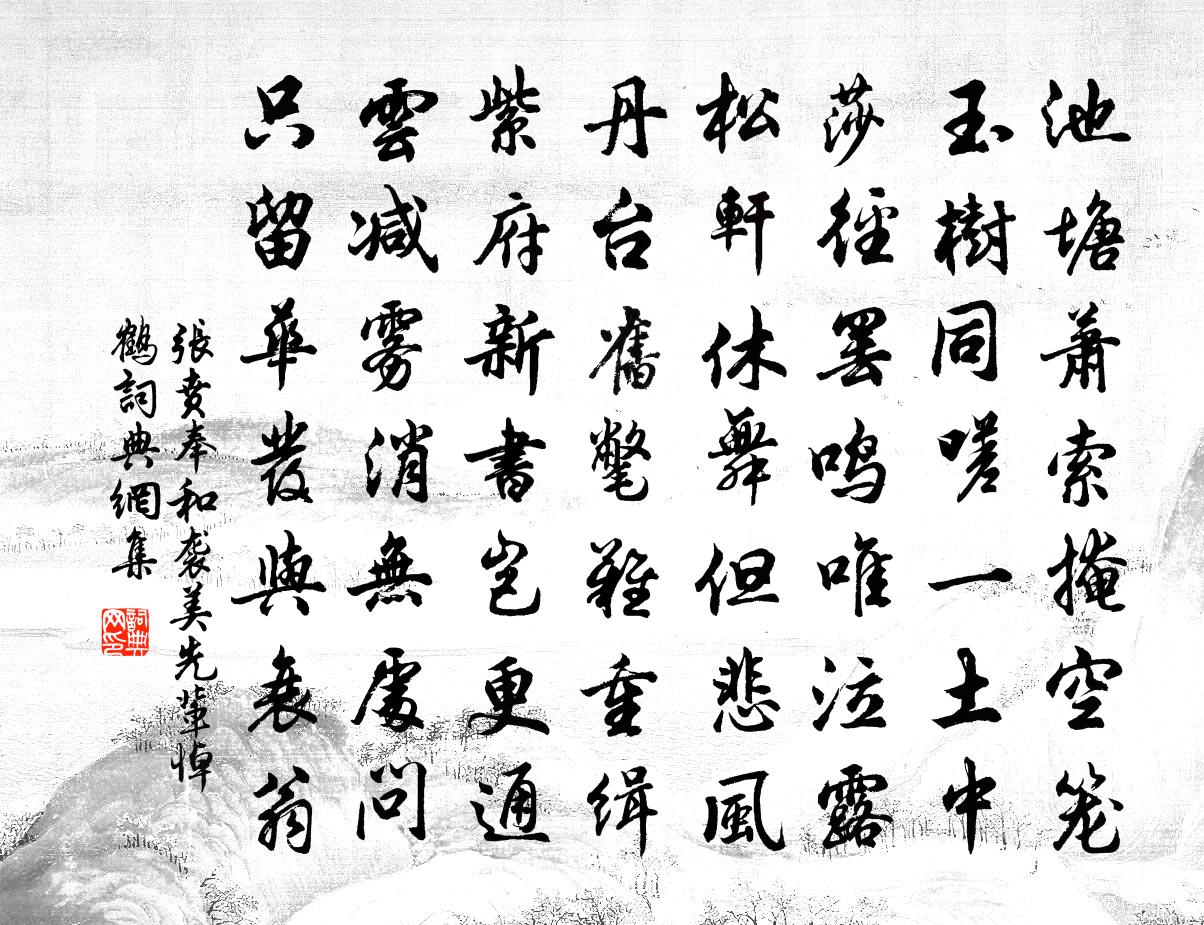 池塘蕭索掩空笼
玉樹同嗟一土中
莎徑罢鸣唯泣露
松軒休舞但悲風
丹台舊氅難重缉
紫府新書岂更通
雲减雾消無處問
只留華髮與衰翁
張賁奉和袭美先輩悼
鶴詞典網集
詞典網印